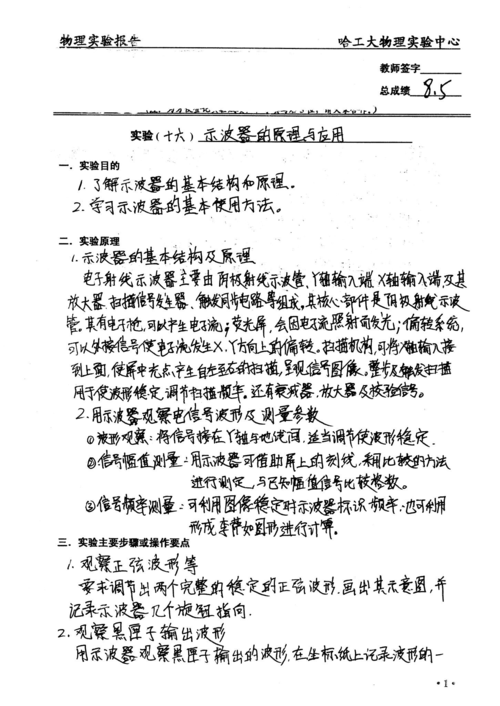 物理实验报告 哈工大物理实验中心
教师签字
总成绩 8.5
实验(十六) 示波器的原理与应用
一．实验目的
1. 了解示波器的基本结构和原理。
2. 学习示波器的基本使用方法。
二．实验原理
1. 示波器的基本结构及原理
电子射线示波器主要由阴极射线示波管、Y轴输入端 X轴输入端及其
放大器、扫描信号发生器、触发同步电路等组成。其核心部件是阴极射线示波
管。其有电子枪，可以产生电子流；荧光屏，会因电子流照射而发光；偏转系统，
可以外接信号使电子流发生X、Y方向上的偏转。扫描机构，可将X轴输入接
到上面，使电光点产生自左至右的扫描，呈现信号图像。整步及触发扫描
用于使波形稳定，调节扫描频率。还有衰减器、放大器及校验信号。
2. 用示波器观察电信号波形及测量参数
①波形观察：将信号接在Y轴与地线间，适当调节使波形稳定．
②信号幅值测量：用示波器可借助屏上的刻线，采用比较的方法
进行测定，与已知幅值信号比较参数。
③信号频率测量：可利用图像稳定时示波器标识频率，也可利用
形成李萨如图形进行计算。
三．实验主要步骤或操作要点
1. 观察正弦波形等
要求调节出两个完整的稳定的正弦波形，画出其示意图，并
记录示波器几个旋钮指向．
2. 观察黑匣子输出波形
用示波器观察黑匣子输出的波形，在坐标纸上记录波形的一
·1·